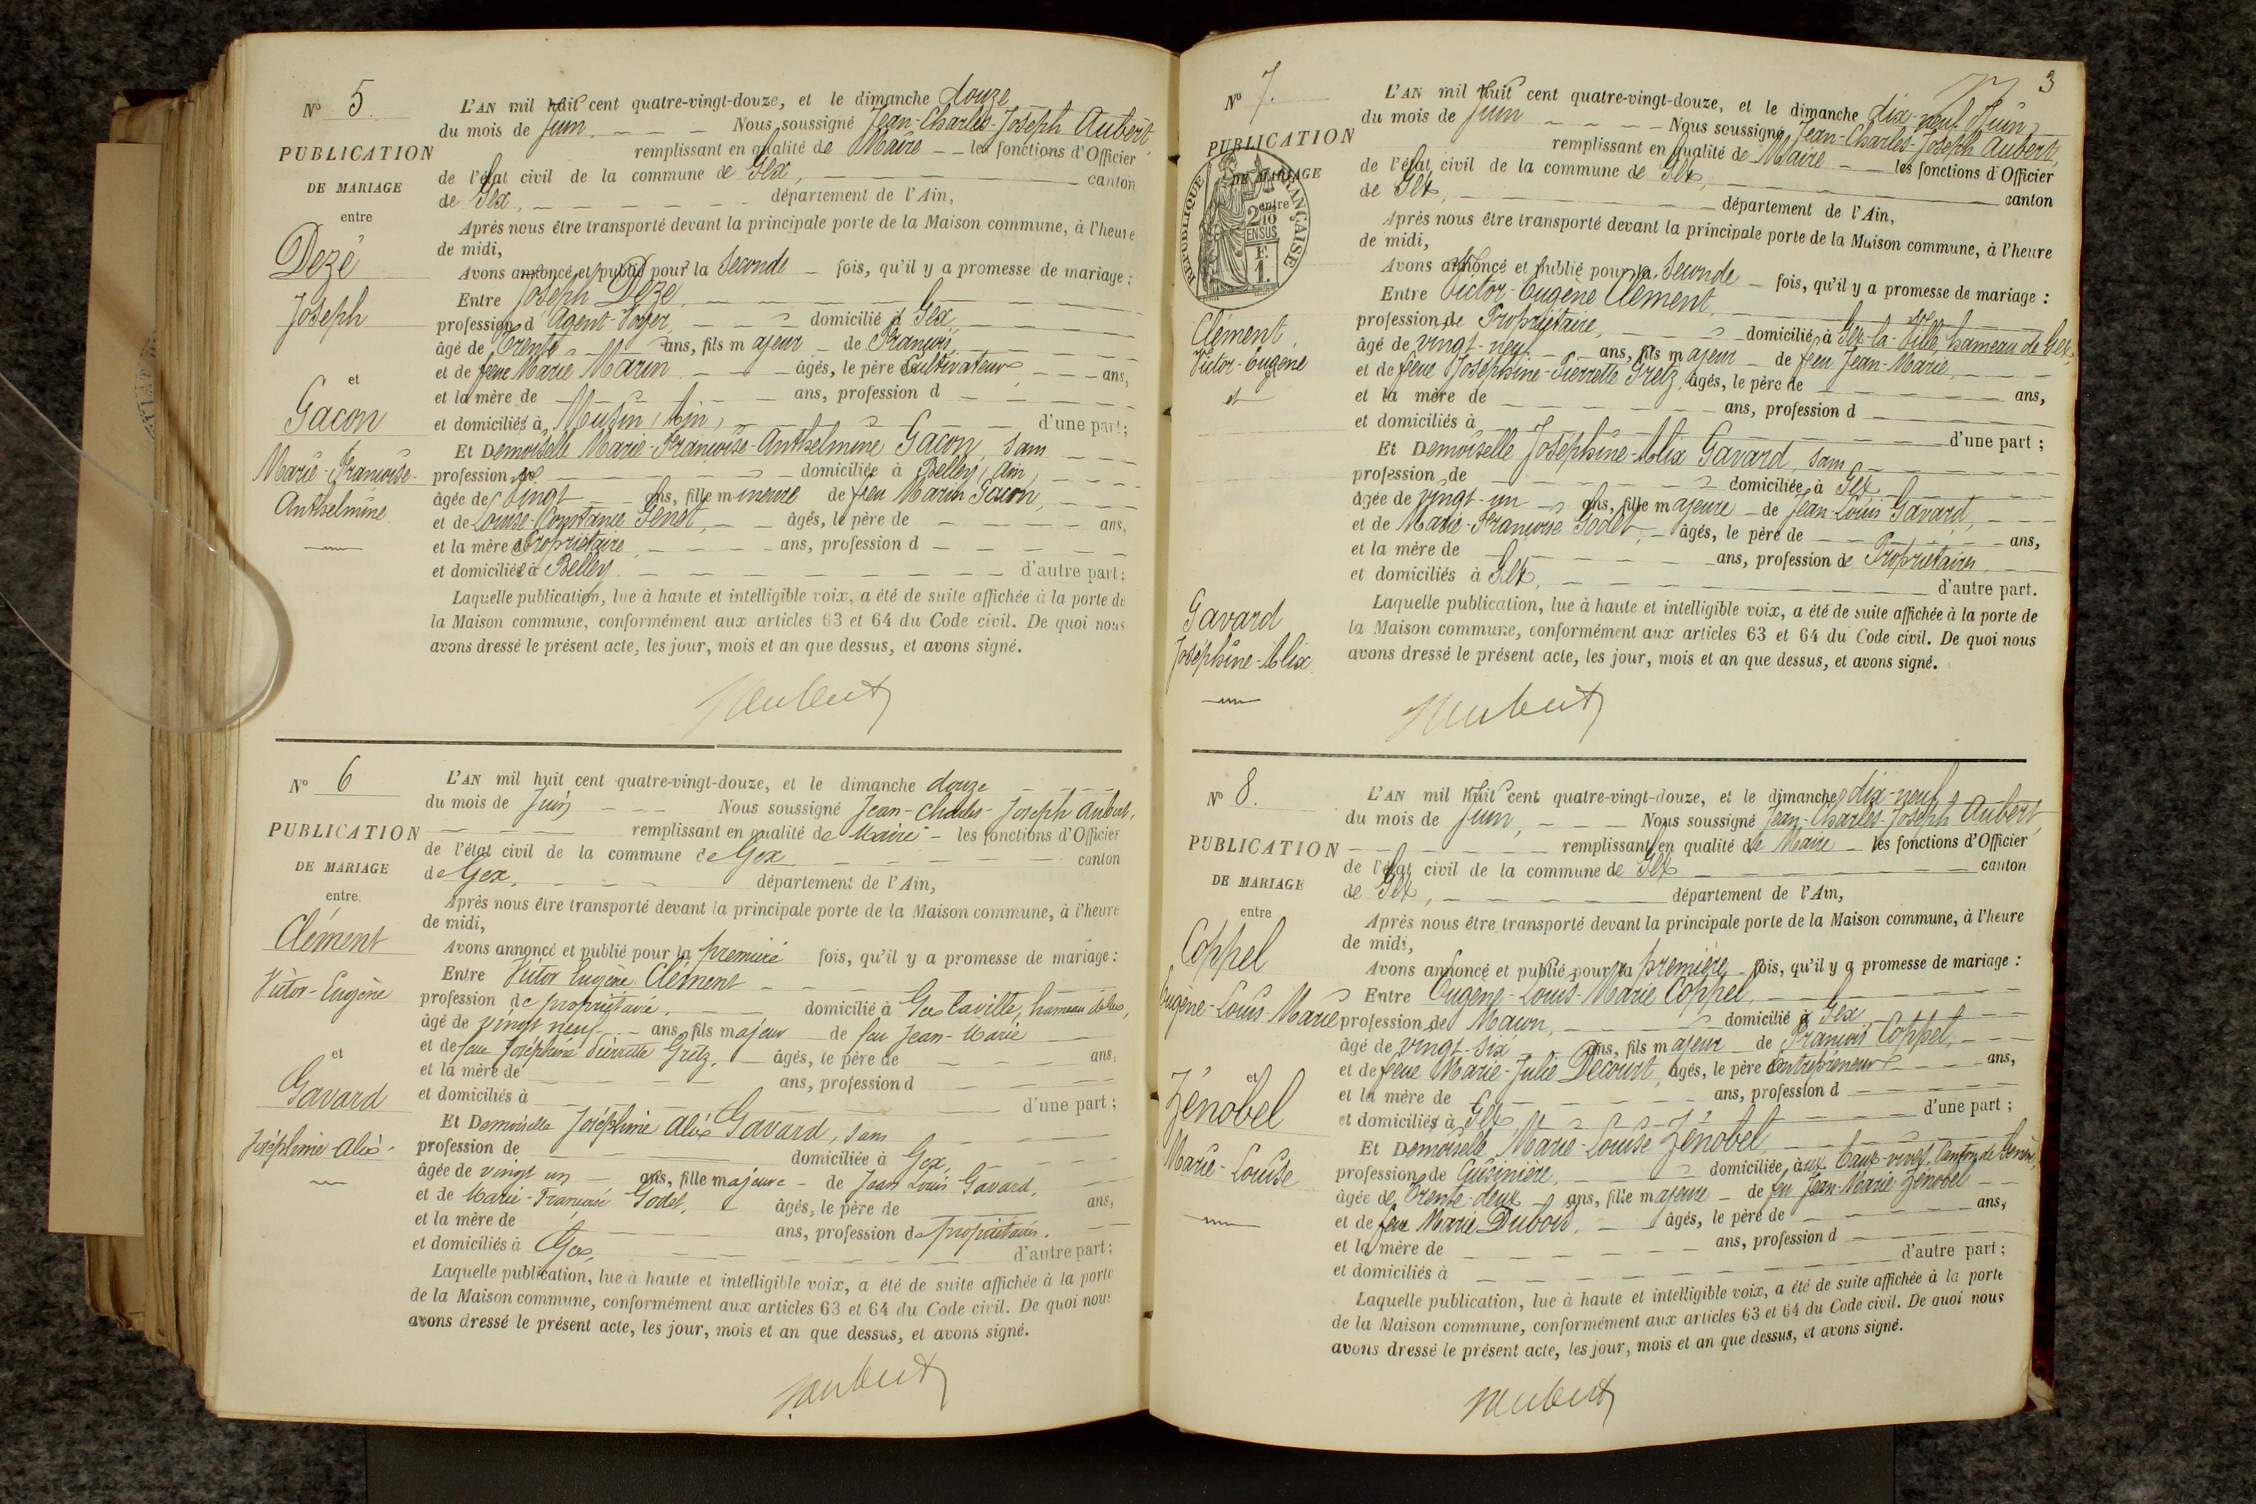 N° 5.
PUBLICATION
DE MARIAGE
entre
Dezé
Joseph
et
Gacon
Marie-Françoise-
Anthelmine
L'AN mil huit cent quatre-vingt-douze, et le dimanche douze
du mois de Juin Nous soussigné Jean-Charles-Joseph Aubert,
remplissant en qualité de Maire les fonctions d'Officier
de l'état civil de la commune de Gex, canton
de Gex, département de l'Ain,
Après nous être transporté devant la principale porte de la Maison commune, à l'heure
de midi,
Avons annoncé et publié pour la Seconde fois, qu'il y a promesse de mariage :
Entre Joseph Dezé,
profession d'Agent-Voyer, domicilié à Gex
âgé de Trente ans, fils majeur de François,
et de feue Marie Marin âgés, le père Cultivateur, ans,
et la mère de ans, profession d
et domiciliés à (Ain), d'une part;
Et Demoiselle Marie-Françoise-Anthelmine Gacon, sans
profession, de domiciliée à Belley, Ain,
âgée de Vingt ans, fille mineure de feu Marin Gacon,
et de Louise-Constance Genot, âgés, le père de ans,
et la mère Propriétaire, ans, profession d
et domiciliés à Belley d'autre part;
Laquelle publication, lue à haute et intelligible voix, a été de suite affichée à la porte de
la Maison commune, conformément aux articles 63 et 64 du Code civil. De quoi nous
avons dressé le présent acte, les jour, mois et an que dessus, et avons signé.
JAubert
N° 6
PUBLICATION
DE MARIAGE
entre
Clément
Victor-Eugène
et
Gavard
Joséphine Alix-
L'AN mil huit cent quatre-vingt-douze, et le dimanche douze
du mois de Juin Nous soussigné Jean-Charles-Joseph Aubert,
remplissant en qualité de Maire les fonctions d'Officier
de l'état civil de la commune de Gex canton
de Gex, département de l'Ain,
Après nous être transporté devant la principale porte de la Maison commune, à l'heure
de midi,
Avons annoncé et publié pour la première fois, qu'il y a promesse de mariage :
Entre Victor Eugène Clément
profession de propriétaire, domicilié à Gex laville, hameau de Gex,
âgé de vingt neuf ans, fils majeur de feu Jean-Marie
et de feue Joséphine Pierrette Gretz, âgés, le père de ans,
et la mère de ans, profession d
et domiciliés à d'une part;
Et Demoiselle Joséphine Alix Gavard, sans
profession de domiciliée à Gex,
âgée de vingt un ans, fille majeure de Jean Louis Gavard,
et de Marie-Françoise Godet, âgés, le père de ans,
et la mère de ans, profession de propriétaires.
et domiciliés à Gex, d'autre part;
Laquelle publication, lue à haute et intelligible voix, a été de suite affichée à la porte
de la Maison commune, conformément aux articles 63 et 64 du Code civil. De quoi nous
avons dressé le présent acte, les jour, mois et an que dessus, et avons signé.
JAubert
3
N° 7.
PUBLICATION
DE MARIAGE
entre
RÉPUBLIQUE FRANÇAISE
2/10
EN SUS
F.
1.
Clément
Victor-Eugène
et
Gavard
Joséphine-Alix
L'AN mil huit cent quatre-vingt-douze, et le dimanche dix-neuf Juin
du mois de Juin Nous soussigné Jean-Charles-Joseph Aubert,
remplissant en qualité de Maire les fonctions d'Officier
de l'état civil de la commune de Gex, canton
de Gex, département de l'Ain,
Après nous être transporté devant la principale porte de la Maison commune, à l'heure
de midi,
Avons annoncé et publié pour la Seconde fois, qu'il y a promesse de mariage :
Entre Victor-Eugène Clément,
profession de Propriétaire, domicilié à Gex-la-Ville, hameau de Gex,
âgé de vingt-neuf ans, fils majeur de feu Jean-Marie,
et de feue Joséphine-Pierrette Gretz, âgés, le père de ans,
et la mère de ans, profession d
et domiciliés à d'une part ;
Et Demoiselle Joséphine-Alix Gavard, sans
profession, de domiciliée à Gex
âgée de vingt-un ans, fille majeure de Jean-Louis Gavard,
et de Marie-Françoise Godet, âgés, le père de ans,
et la mère de ans, profession de Propriétaires
et domiciliés à Gex, d'autre part.
Laquelle publication, lue à haute et intelligible voix, a été de suite affichée à la porte de
la Maison commune, conformément aux articles 63 et 64 du Code civil. De quoi nous
avons dressé le présent acte, les jour, mois et an que dessus, et avons signé.
JAubert
N° 8.
PUBLICATION
DE MARIAGE
entre
Coppel
Eugène-Louis-Marie
et
Zénobel
Marie-Louise
L'AN mil huit cent quatre-vingt-douze, et le dimanche dix-neuf
du mois de Juin, Nous soussigné Jean-Charles-Joseph Aubert,
remplissant en qualité de Maire les fonctions d'Officier
de l'état civil de la commune de Gex canton
de Gex, département de l'Ain,
Après nous être transporté devant la principale porte de la Maison commune, à l'heure
de midi,
Avons annoncé et publié pour la première fois, qu'il y a promesse de mariage :
Entre Eugène-Louis-Marie Coppel,
profession de Maçon, domicilié à Gex
âgé de vingt-six ans, fils majeur de François Coppel,
et de feue Marie-Julie Decourt, âgés, le père Entrepreneur ans,
et la mère de ans, profession d
et domiciliés à Gex, d'une part ;
Et Demoiselle Marie-Louise Zénobel,
profession de Cuisinière, domiciliée aux Eaux-vives, Canton de Genève,
âgée de Trente-deux ans, fille majeure de feu Jean-Marie Zénobel
et de feue Marie Dubois, âgés, le père de ans,
et la mère de ans, profession d
et domiciliés à d'autre part ;
Laquelle publication, lue à haute et intelligible voix, a été de suite affichée à la porte
de la Maison commune, conformément aux articles 63 et 64 du Code civil. De quoi nous
avons dressé le présent acte, les jour, mois et an que dessus, et avons signé.
JAubert